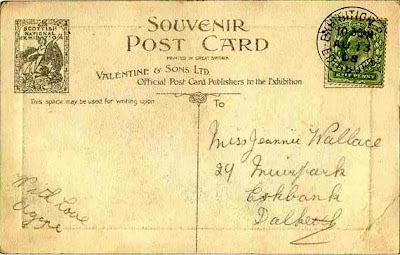 SCOTTISH
NATIONAL
EXHIBITION
SOUVENIR
POST CARD
PRINTED IN GREAT BRITAIN
VALENTINE & SONS LTD
Official Post Card Publishers to the Exhibition.
This space may be used for writing upon
To
EXHIBITION
AU 13
08
HALF PENNY
Miss Jeannie Wallace
29 Muirpark
Eskbank
Dalkeith
With Love